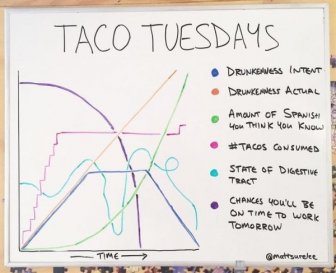 TACO TUESDAYS
DRUNKENNESS INTENT
DRUNKENNESS ACTUAL
AMOUNT OF SPANISH
YOU THINK YOU KNOW
#TACOS CONSUMED
STATE OF DIGESTIVE
TRACT
CHANCES YOU'LL BE
ON TIME TO WORK
TOMORROW
TIME
@mattsurelee